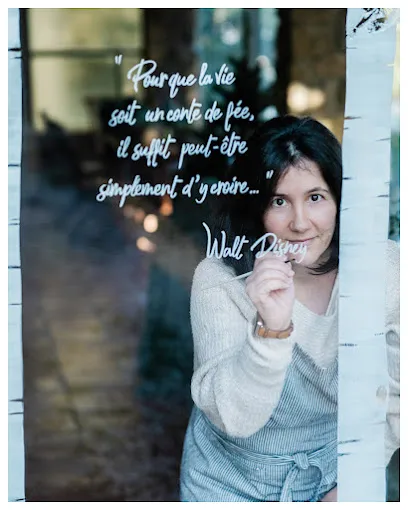 " Pour que la vie
soit un conte de fée,
il suffit peut-être
simplement d'y croire... "
Walt Disney